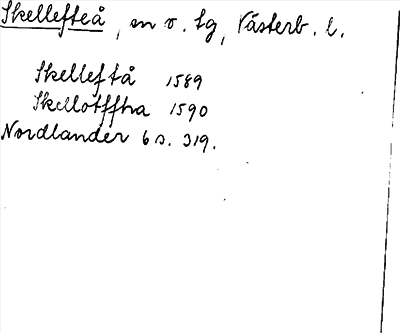 Skellefteå, sn o. tg, Västerb. l.
Skelleftå 1589
Skellotfftha 1590
Nordlander 6 s. 319.